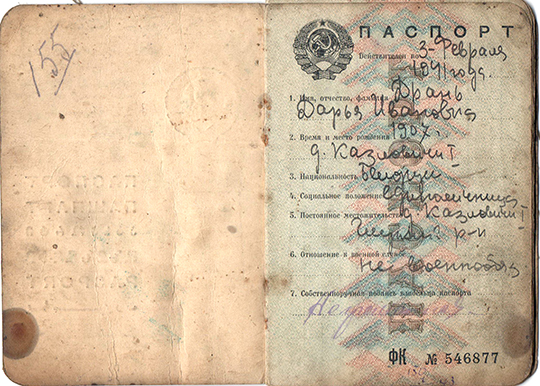 155
ПАСПОРТ
Действителен по 3 Февраля
1941 года.
1. Имя, отчество, фамилия Дрань
Дарья Ивановна
2. Время и место рождения 1907 г.
д. Казловичи I
3. Национальность
4. Социальное положение единоличница
5. Постоянное местожительство д. Казловичи I
р-н
6. Отношение к военной службе
не военнообяз
7. Собственноручная подпись владельца паспорта
ФК № 546877